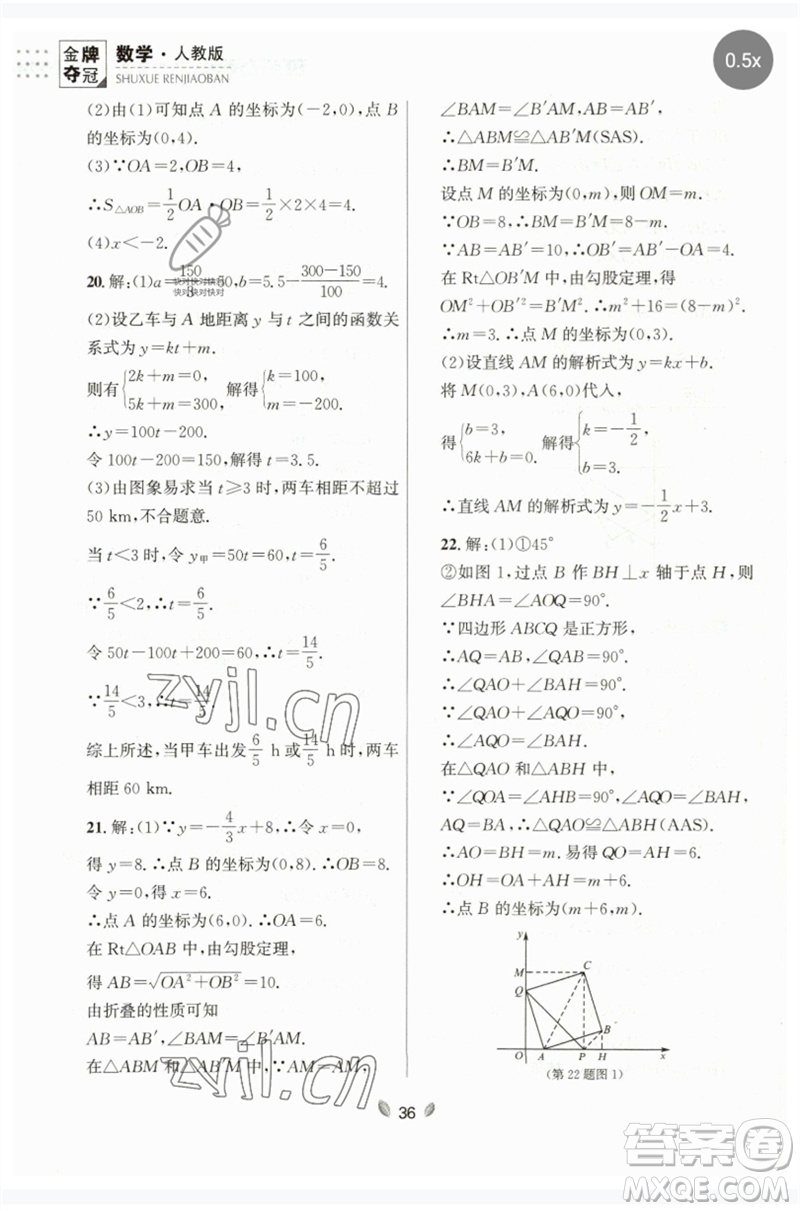 金牌夺冠 数学·人教版
SHUXUE RENJIAOBAN
0.5x
(2)由(1)可知点 A 的坐标为(-2,0),点 B
的坐标为(0,4).
(3)∵OA=2,OB=4,
∴S△AOB=1/2 OA·OB=1/2×2×4=4.
(4)x<-2.
20.解:(1)a=150/3=50,b=5.5-(300-150)/100=4.
快对快对快对快对
快对快对快对快对
(2)设乙车与 A 地距离 y 与 t 之间的函数关
系式为 y=kt+m.
则有{2k+m=0, 5k+m=300, 解得{k=100, m=-200.
∴y=100t-200.
令 100t-200=150,解得 t=3.5.
(3)由图象易求当 t≥3 时,两车距不超过
50 km,不合题意.
当 t<3 时,令 y甲=50t=60,t=6/5.
∵6/5<2,∴t=6/5.
令 50t-100t+200=60,∴t=14/5.
∵14/5<3,∴t=14/5.
综上所述,当甲车出发6/5 h或14/5 h时,两车
相距 60 km.
21.解:(1)∵y=-4/3x+8,∴令 x=0,
得 y=8.∴点 B 的坐标为(0,8).∴OB=8.
令 y=0,得 x=6.
∴点 A 的坐标为(6,0).∴OA=6.
在 Rt△OAB 中,由勾股定理,
得 AB=√(OA²+OB²)=10.
由折叠的性质可知
AB=AB′,∠BAM=∠B′AM.
在△ABM 和△AB′M 中,
∠BAM=∠B′AM,AB=AB′,
∴△ABM≌△AB′M(SAS).
∴BM=B′M.
设点 M 的坐标为(0,m),则 OM=m.
∵OB=8,∴BM=B′M=8-m.
∵AB=AB′=10,∴OB′=AB′-OA=4.
在 Rt△OB′M 中,由勾股定理,得
OM²+OB′²=B′M².∴m²+16=(8-m)².
∴m=3.∴点 M 的坐标为(0,3).
(2)设直线 AM 的解析式为 y=kx+b.
将 M(0,3),A(6,0)代入,
得{b=3, 6k+b=0. 解得{k=-1/2, b=3.
∴直线 AM 的解析式为 y=-1/2x+3.
22.解:(1)①45°
②如图 1,过点 B 作 BH⊥x 轴于点 H,则
∠BHA=∠AOQ=90°.
∵四边形 ABCQ 是正方形,
∴AQ=AB,∠QAB=90°.
∴∠QAO+∠BAH=90°.
∵∠QAO+∠AQO=90°,
∴∠AQO=∠BAH.
在△QAO 和△ABH 中,
∵∠QOA=∠AHB=90°,∠AQO=∠BAH,
AQ=BA,∴△QAO≌△ABH(AAS).
∴AO=BH=m.易得 QO=AH=6.
∴OH=OA+AH=m+6.
∴点 B 的坐标为(m+6,m).
y
M C
Q
B
O A P H x
(第 22 题图 1)
zyjl.cn
zyjl.cn
36
答案卷
MXQE.COM